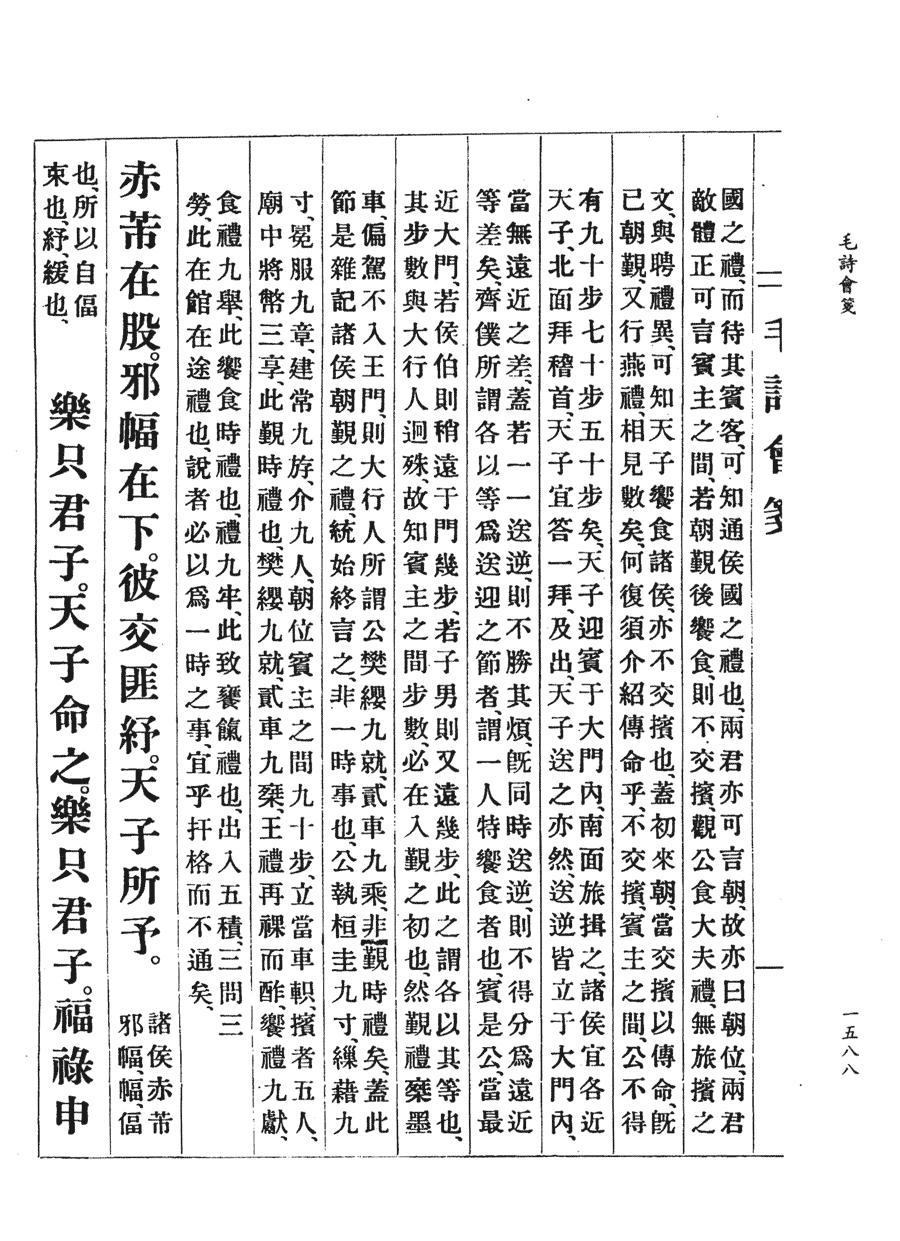 毛詩會箋
一五八八
毛詩會箋
國之禮、而待其賓客、可知通侯國之禮也、兩君亦可言朝、故亦曰朝位、兩君
敵體正可言賓主之間、若朝覲後饗食、則不交擯、觀公食大夫禮、無旅擯之
文、與聘禮異、可知天子饗食諸侯、亦不交擯也、蓋初來朝、當交擯以傳命、既
已朝覲、又行燕禮、相見數矣、何復須介紹傳命乎、不交擯、賓主之間、公不得
有九十步七十步五十步矣、天子迎賓于大門內、南面旅揖之、諸侯宜各近
天子、北面拜稽首、天子宜答一拜、及出、天子送之亦然、送逆皆立于大門內、
當無遠近之差、蓋若一一送逆、則不勝其煩、既同時送逆、則不得分爲遠近
等差矣、齊僕所謂各以等爲送迎之節者、謂一人特饗食者也、賓是公、當最
近大門、若侯伯則稍遠于門幾步、若子男則又遠幾步、此之謂各以其等也、
其步數與大行人迥殊、故知賓主之間步數、必在入覲之初也、然覲禮椉墨
車、偏駕不入王門、則大行人所謂公樊纓九就、貳車九乘、非覲時禮矣、蓋此
節是雜記諸侯朝覲之禮、統始終言之、非一時事也、公執桓圭九寸、繅藉九
寸、冕服九章、建常九斿、介九人、朝位賓主之間九十步、立當車軹、擯者五人、
廟中將幣三享、此覲時禮也、樊纓九就、貳車九椉、王禮再祼而酢、饗禮九獻、
食禮九舉、此饗食時禮也、禮九牢、此致饔餼禮也、出入五積、三問三
勞、此在館在途禮也、說者必以爲一時之事、宜乎扞格而不通矣、
赤芾在股。邪幅在下。彼交匪紓。天子所予。
諸侯赤芾
邪幅、幅、偪
也、所以自偪
束也、紓、緩也、
樂只君子。天子命之。樂只君子。福祿申